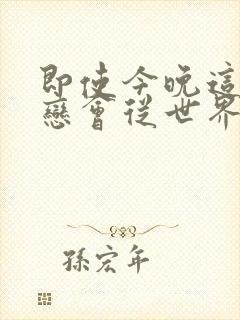 即使今晚這
戀會從世界
孫宏年